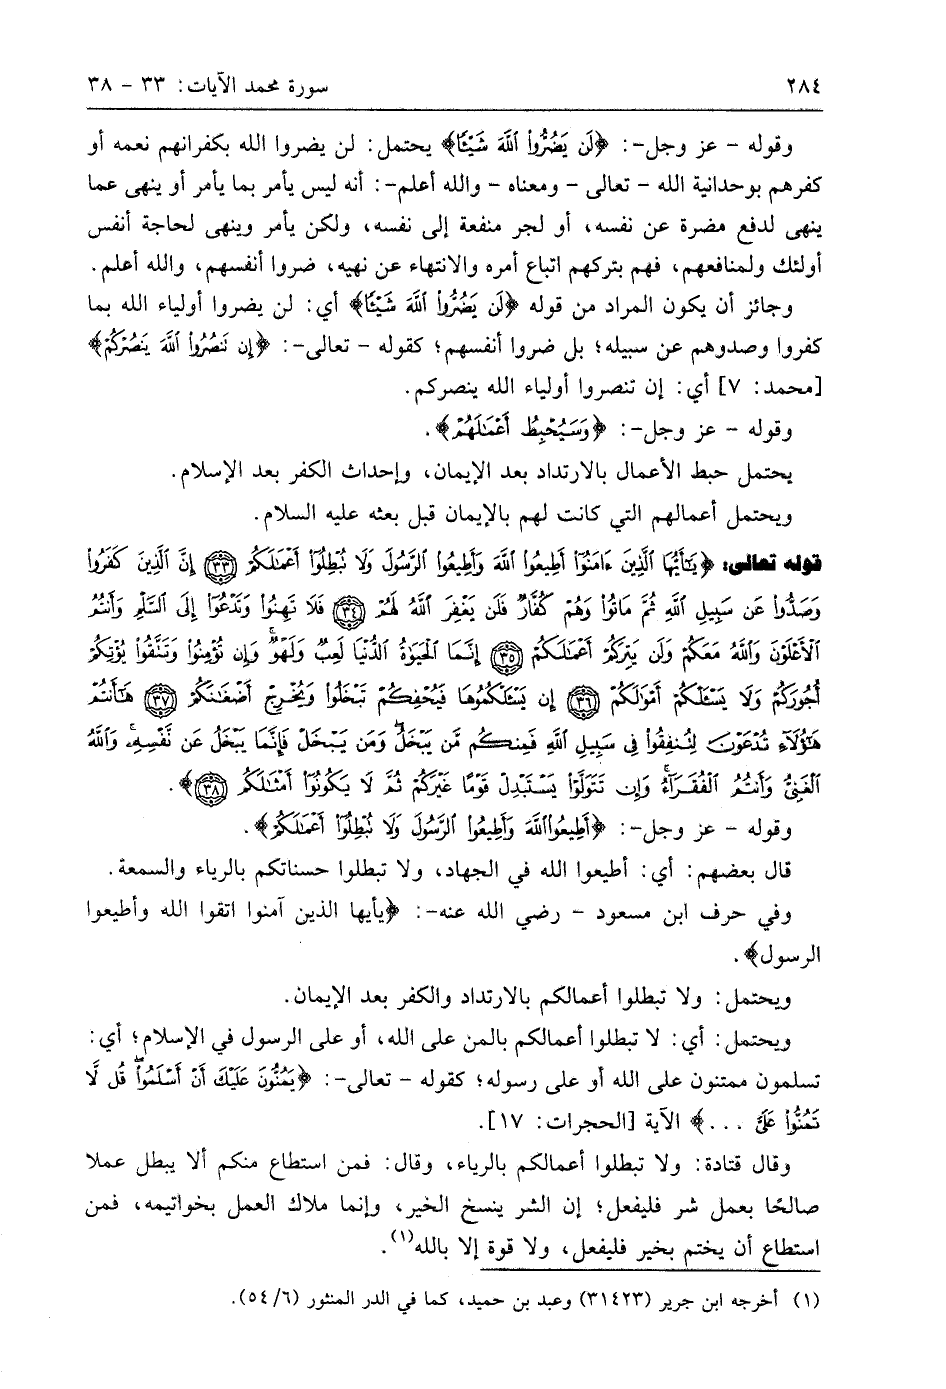 ٢٨٤ سورة محمد الآيات: ٣٣ - ٣٨
وقوله - عز وجل-: ﴿لَن يَضُرُّواْ ٱللَّهَ شَيْـًٔا﴾ يحتمل: لن يضروا الله بكفرانهم نعمه أو
كفرهم بوحدانية الله - تعالى - ومعناه - والله أعلم-: أنه ليس يأمر بما يأمر أو ينهى عما
ينهى لدفع مضرة عن نفسه، أو لجر منفعة إلى نفسه، ولكن يأمر وينهى لحاجة أنفس
أولئك ولمنافعهم، فهم بتركهم اتباع أمره والانتهاء عن نهيه، ضروا أنفسهم، والله أعلم.
وجائز أن يكون المراد من قوله ﴿لَن يَضُرُّواْ ٱللَّهَ شَيْـًٔا﴾ أي: لن يضروا أولياء الله بما
كفروا وصدوهم عن سبيله؛ بل ضروا أنفسهم؛ كقوله - تعالى-: ﴿إِن تَنصُرُواْ ٱللَّهَ يَنصُرْكُمْ﴾
[محمد: ٧] أي: إن تنصروا أولياء الله ينصركم.
وقوله - عز وجل-: ﴿وَسَيُحْبِطُ أَعْمَـٰلَهُمْ﴾.
يحتمل حبط الأعمال بالارتداد بعد الإيمان، وإحداث الكفر بعد الإسلام.
ويحتمل أعمالهم التي كانت لهم بالإيمان قبل بعثه عليه السلام.
قوله تعالى: ﴿يَـٰٓأَيُّهَا ٱلَّذِينَ ءَامَنُوٓاْ أَطِيعُواْ ٱللَّهَ وَأَطِيعُواْ ٱلرَّسُولَ وَلَا تُبْطِلُوٓاْ أَعْمَـٰلَكُمْ ٣٣ إِنَّ ٱلَّذِينَ كَفَرُواْ
وَصَدُّواْ عَن سَبِيلِ ٱللَّهِ ثُمَّ مَاتُواْ وَهُمْ كُفَّارٌ فَلَن يَغْفِرَ ٱللَّهُ لَهُمْ ٣٤ فَلَا تَهِنُواْ وَتَدْعُوٓاْ إِلَى ٱلسَّلْمِ وَأَنتُمُ
ٱلْأَعْلَوْنَ وَٱللَّهُ مَعَكُمْ وَلَن يَتِرَكُمْ أَعْمَـٰلَكُمْ ٣٥ إِنَّمَا ٱلْحَيَوٰةُ ٱلدُّنْيَا لَعِبٌ وَلَهْوٌ ۚ وَإِن تُؤْمِنُواْ وَتَتَّقُواْ يُؤْتِكُمْ
أُجُورَكُمْ وَلَا يَسْـَٔلْكُمْ أَمْوَٰلَكُمْ ٣٦ إِن يَسْـَٔلْكُمُوهَا فَيُحْفِكُمْ تَبْخَلُواْ وَيُخْرِجْ أَضْغَـٰنَكُمْ ٣٧ هَـٰٓأَنتُمْ
هَـٰٓؤُلَآءِ تُدْعَوْنَ لِتُنفِقُواْ فِى سَبِيلِ ٱللَّهِ فَمِنكُم مَّن يَبْخَلُ ۖ وَمَن يَبْخَلْ فَإِنَّمَا يَبْخَلُ عَن نَّفْسِهِۦ ۚ وَٱللَّهُ
ٱلْغَنِىُّ وَأَنتُمُ ٱلْفُقَرَآءُ ۚ وَإِن تَتَوَلَّوْاْ يَسْتَبْدِلْ قَوْمًا غَيْرَكُمْ ثُمَّ لَا يَكُونُوٓاْ أَمْثَـٰلَكُمْ ٣٨﴾.
وقوله - عز وجل-: ﴿أَطِيعُواْ ٱللَّهَ وَأَطِيعُواْ ٱلرَّسُولَ وَلَا تُبْطِلُوٓاْ أَعْمَـٰلَكُمْ﴾.
قال بعضهم: أي: أطيعوا الله في الجهاد، ولا تبطلوا حسناتكم بالرياء والسمعة.
وفي حرف ابن مسعود - رضي الله عنه-: ﴿يأيها الذين آمنوا اتقوا الله وأطيعوا
الرسول﴾.
ويحتمل: ولا تبطلوا أعمالكم بالارتداد والكفر بعد الإيمان.
ويحتمل: أي: لا تبطلوا أعمالكم بالمن على الله، أو على الرسول في الإسلام؛ أي:
تسلمون ممتنون على الله أو على رسوله؛ كقوله - تعالى-: ﴿يَمُنُّونَ عَلَيْكَ أَنْ أَسْلَمُواْ ۖ قُل لَّا
تَمُنُّواْ عَلَىَّ ...﴾ الآية [الحجرات: ١٧].
وقال قتادة: ولا تبطلوا أعمالكم بالرياء، وقال: فمن استطاع منكم ألا يبطل عملا
صالحًا بعمل شر فليفعل؛ إن الشر ينسخ الخير، وإنما ملاك العمل بخواتيمه، فمن
استطاع أن يختم بخير فليفعل، ولا قوة إلا بالله(١).
(١) أخرجه ابن جرير (٣١٤٢٣) وعبد بن حميد، كما في الدر المنثور (٥٤/٦).